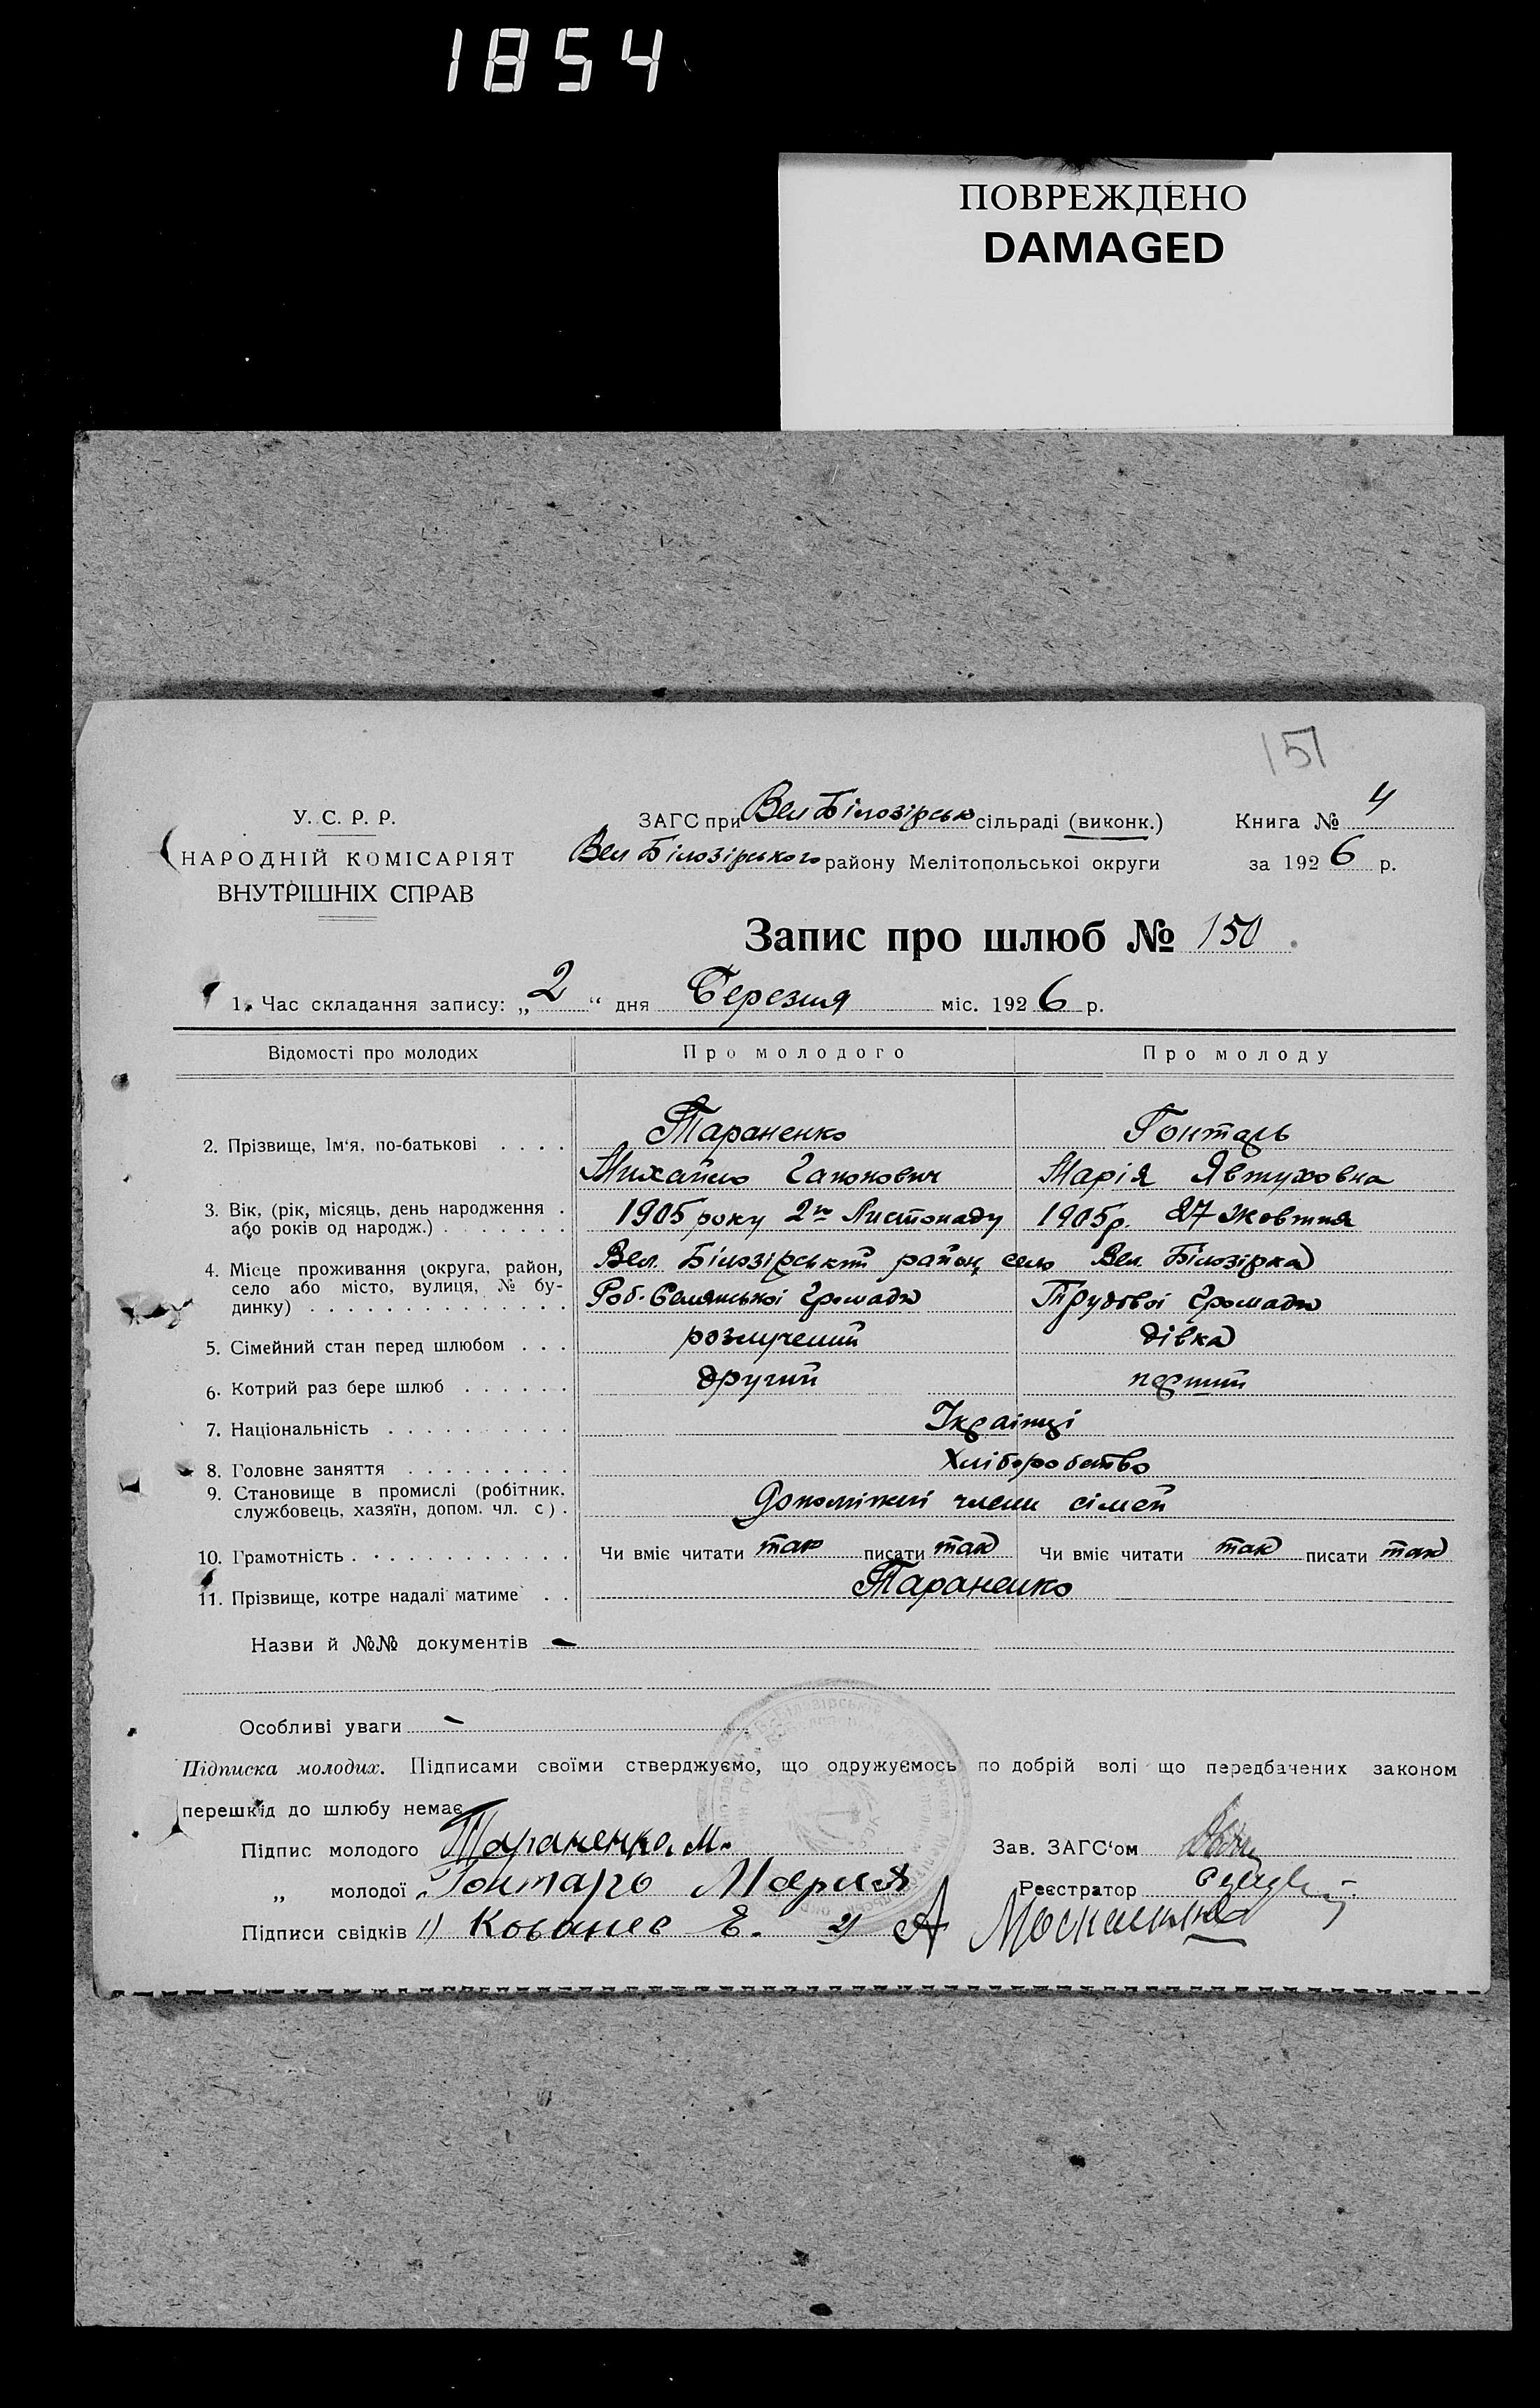 1854
ПОВРЕЖДЕНО
DAMAGED
151
У. С. Р. Р.
НАРОДНІЙ КОМІСАРІЯТ
ВНУТРІШНІХ СПРАВ
ЗАГС при Вел Білозірсько сільраді (виконк.)
Вел Білозірського району Мелітопольськоі округи
Книга № 4
за 1926 р.
Запис про шлюб № 150
1. Час складання запису: „2“ дня Березня міс. 1926 р.
Відомості про молодих Про молодого Про молоду
2. Прізвище, Ім‘я, по-батькові . . . . Тараненко Гонтарь
Михайло Гапонович Марія Явтуховна
3. Вік, (рік, місяць, день народження .
або років од народж.) . . . . . . . 1905 року 2го Листопаду 1905р. 27 Жовтня
4. Місце проживання (округа, район,
село або місто, вулиця, № бу-
динку) . . . . . . . . . . . . . .
Вел. Білозірський район село Вел. Білозірка
Роб-Селянської Громади Трудової Громади
5. Сімейний стан перед шлюбом . . . розлучений дівка
6. Котрий раз бере шлюб . . . . . . другий перший
7. Національність . . . . . . . . . . Українці
8. Головне заняття . . . . . . . . . Хліборобство
9. Становище в промислі (робітник,
службовець, хазяїн, допом. чл. с) . Допоміжні члени сімей
10. Грамотність . . . . . . . . . . . . Чи вміє читати так писати так Чи вміє читати так писати так
11. Прізвище, котре надалі матиме . . Тараненко
Назви й №№ документів -
Особливі уваги -
Підписка молодих. Підписами своїми стверджуємо, що одружуємось по добрій волі що передбачених законом
перешкід до шлюбу немає
Підпис молодого Тараненко. М.
„ молодої Гонтарь Мария
Підписи свідків 1) Кованев Е. 2) А
Зав. ЗАГС‘ом
Реєстратор